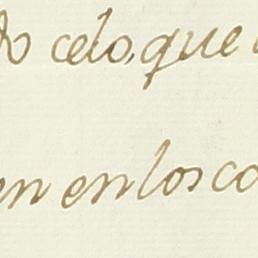 do celo, que
en en los co